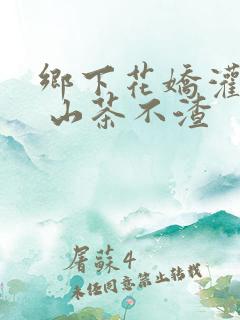 鄉下花嬌灌
山茶不渣
屠蘇4
未经同意禁止转载